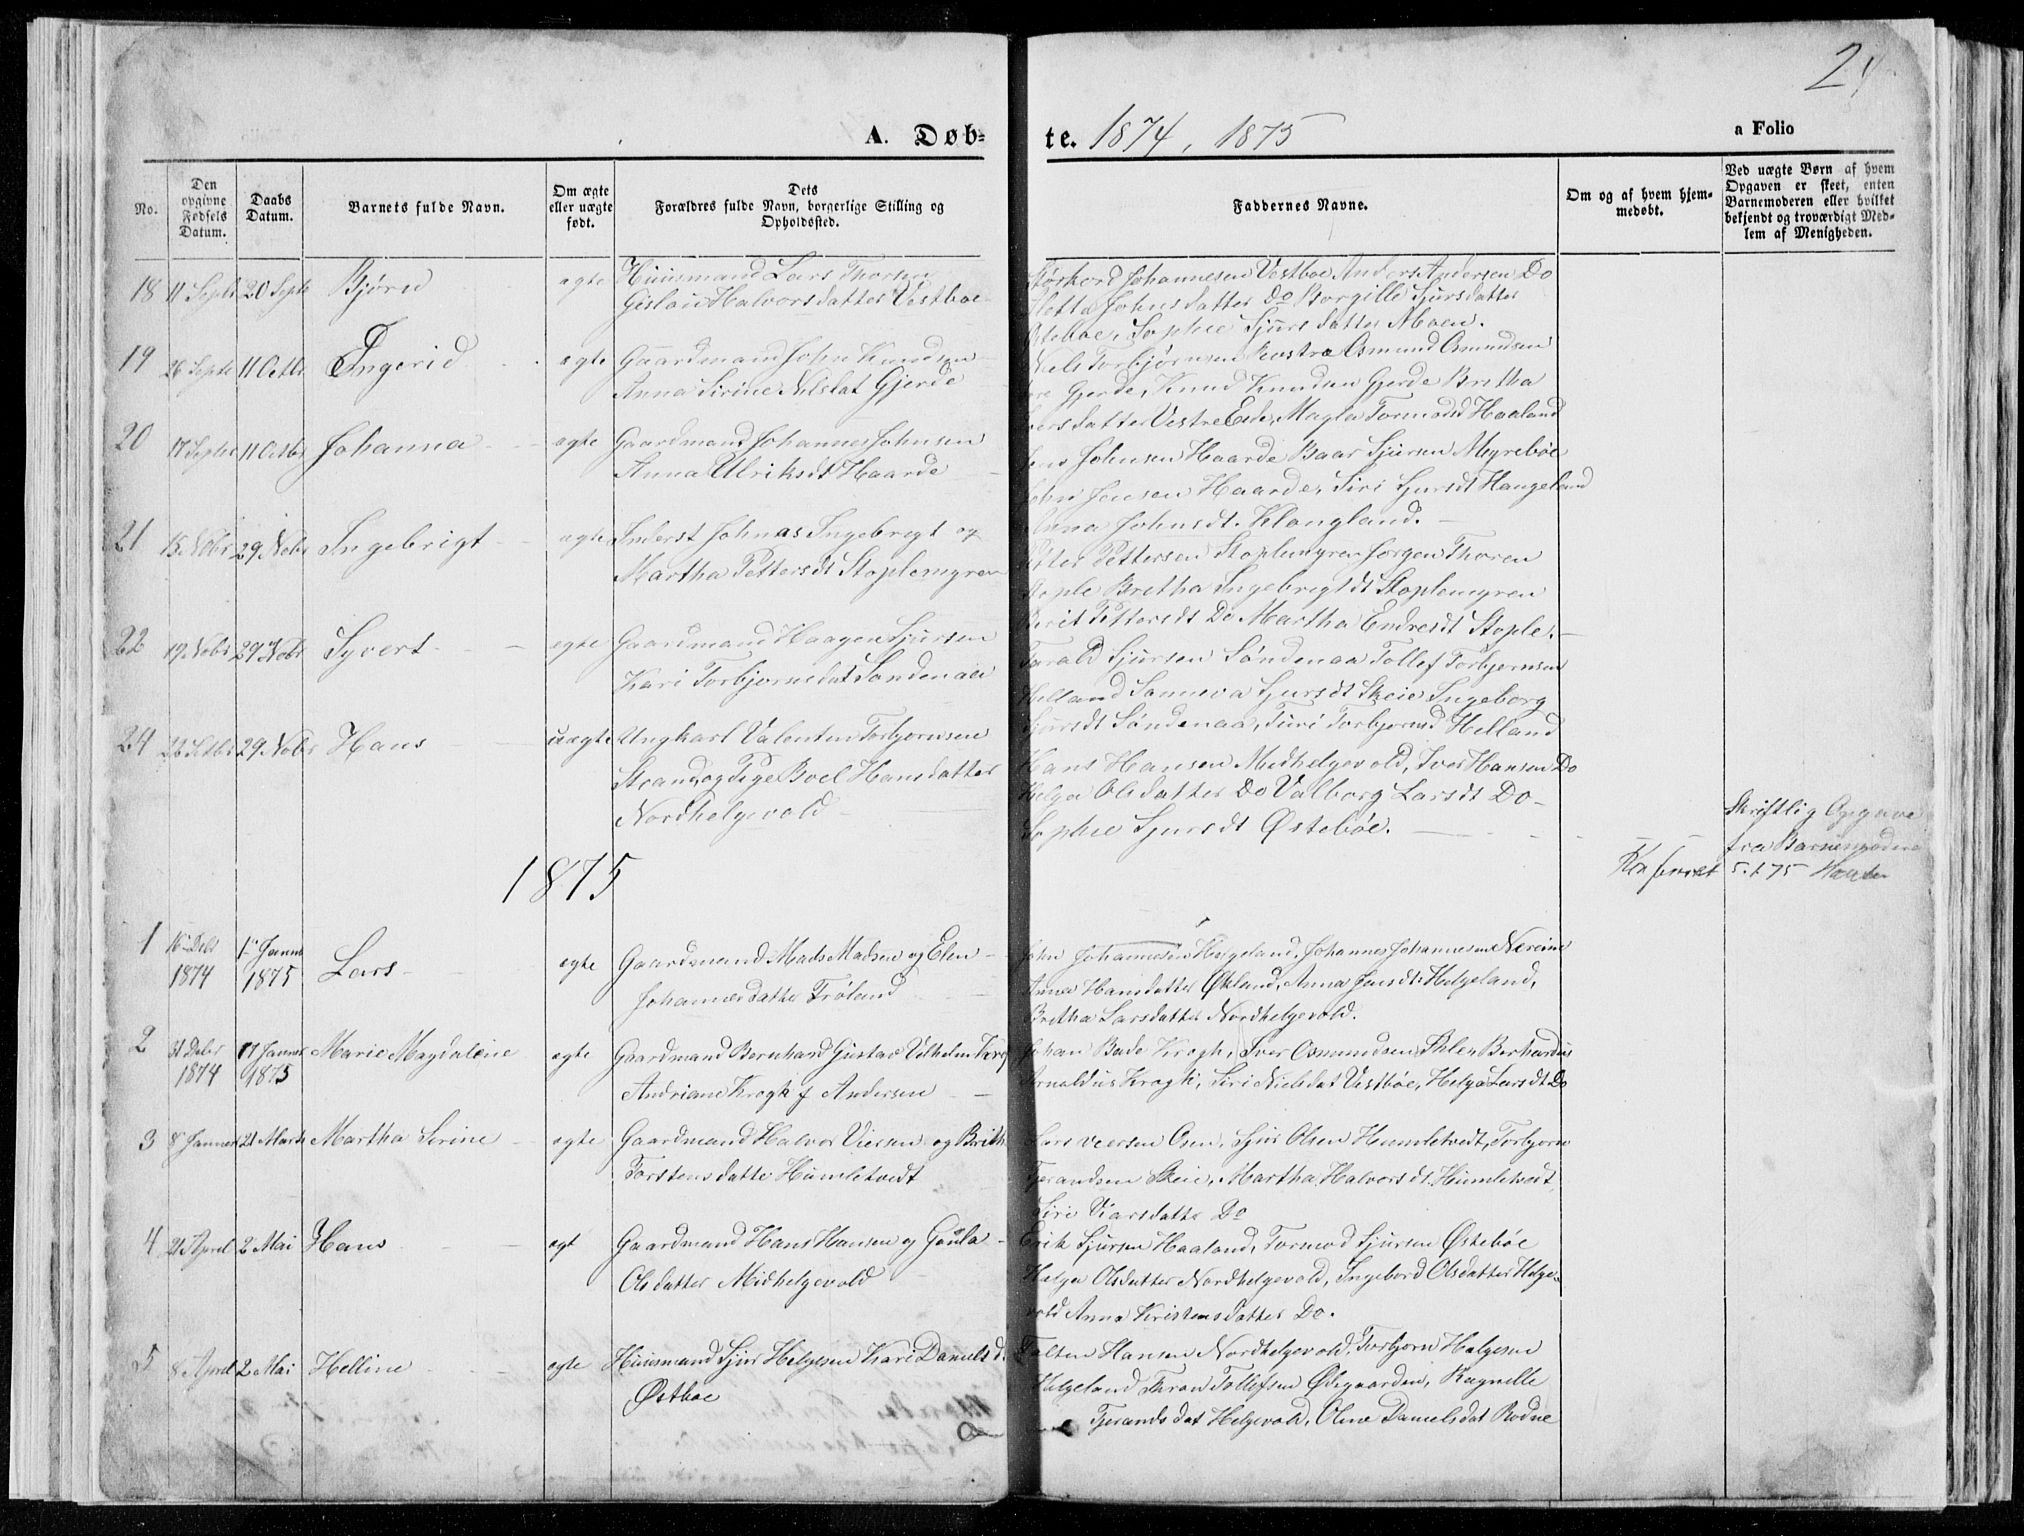 24
A. Døb-
te. 1874, 1875
a Folio
No.
Den opgivne Fødsels Datum.
Daabs Datum.
Barnets fulde Navn.
Om ægte eller uægte født.
Dets Forældres fulde Navn, borgerlige Stilling og Opholdssted.
Faddernes Navne.
Om og af hvem hjemmedøbt.
Ved uægte Børn af hvem Opgaven er skeet, enten Barnemoderen eller hvilket bekjendt og troværdigt Medlem af Menigheden.
18 11 Septr 20 Septr Bjørn ægte Huusmand Lars Thorsen
Gislau Halvorsdatter Vestboe
Johannesen Vestboe Anders Andersen Do
Metta Johnsdatter Do Borgille Sjursdatter
Østeboe, Sophie Sjursdatter Moen.
19 26 Septr 11 Octbr Ingerid ægte Gaardmand John Knudsen
Anna Sirine Nilsdat Gjerde
Niels Torbjørnsen Osmund Osmundsen
Gjerde, Knud Knudsen Gjerde Bretha
datter Vestre Eide, Magla Tormodsd Haaland
20 17 Septr 11 Octbr Johanna ægte Gaardmand Johannes Johnsen
Anna Ulriksdt Haarde
Jens Johnsen Haarde Baar Sjursen Myrebøe
John Jensen Haarde, Siri Sjursdt Haugeland
Anna Johnsdt. Klongland.
21 15 Nobr 29 Nobr Ingebrigt ægte Inderst Johnas Ingebregt og
Martha Pettersdt Stoplemyren
Petter Pettersen Stoplemyren Jorgen Thoren
Stople Bretha Ingebregtdt Stoplemyren
Berit Pettersdt Do Martha Endresdt Stople.
22 19 Nobr 29 Nobr Syvert ægte Gaardmand Haagen Sjursen
Kari Torbjornsdat Sandenaa
Tarald Sjursen Søndenaa Tollef Torbjornsen
Helland Sanneva Sjursdt Skeie Ingeborg
Sjursdt Søndenaa, Turi Torbjornsd Helland
24 29 Nobr Hans uægte Ungkarl Valentin Torbjornsen
Strand, og Pige Boel Hansdatter
Nordhelgevold
Hans Hansen Midhelgevold, Iver Hansen Do
Helga Olsdatter Do Valborg Larsdt Do
Sophie Sjursdt Østebøe.
Skriftlig Opgave
fra Barnemoderen
5.1.75
1875
1 16 Debr 1874 1 Januar 1875 Lars ægte Gaardmand Mads Madsen og Elen
Johannesdatter Trøland
John Johannesen Helgeland, Johannes Johannesen Nereim
Anna Hansdatter Økland, Anna Jensdt. Helgeland,
Bretha Larsdatter Nordhelgevold.
2 31 Debr 1874 17 Januar 1875 Marie Magdalene ægte Gaardmand Bernhard Gustav Vilhelm Krog
Andriane Krogh f Andersen
Johan Bade Krogh, Iver Osmundsen Øhle, Berhardus
Arnoldus Krogh, Siri Nielsdat Vestbøe, Helga Larsdt Do
3 8 Januar 21 Marts Martha Serine ægte Gaardmand Halvor Viersen og Brith
Torstensdatter Humletvedt
Lars Veersen Osen, Sjur Olsen Humletvedt, Torbjorn
Tjerandsen Skeie, Martha Halvorsdt. Humletvedt
Siri Viarsdatter Do
4 21 Aprel 2 Mai Hans ægt Gaardmand Hans Hansen og Goula
Olsdatter Midhelgevold
Erik Sjursen Haaland, Tormod Sjursen Østebøe
Helga Olsdatter Nordhelgevold, Ingebord Olsdatter Helge-
vold Anna Kristensdatter Do.
5 8 Aprel 2 Mai Helline ægte Huusmand Sjur Helgesen Kari Danielsd.
Østboe
Falten Hansen Nordhelgevold, Torbjorn Helgesen
Helgeland Thron Tollefsen Ødegaarden, Ragnille
Tjerandsdat Helgevold, Oline Danielsdat Rodne